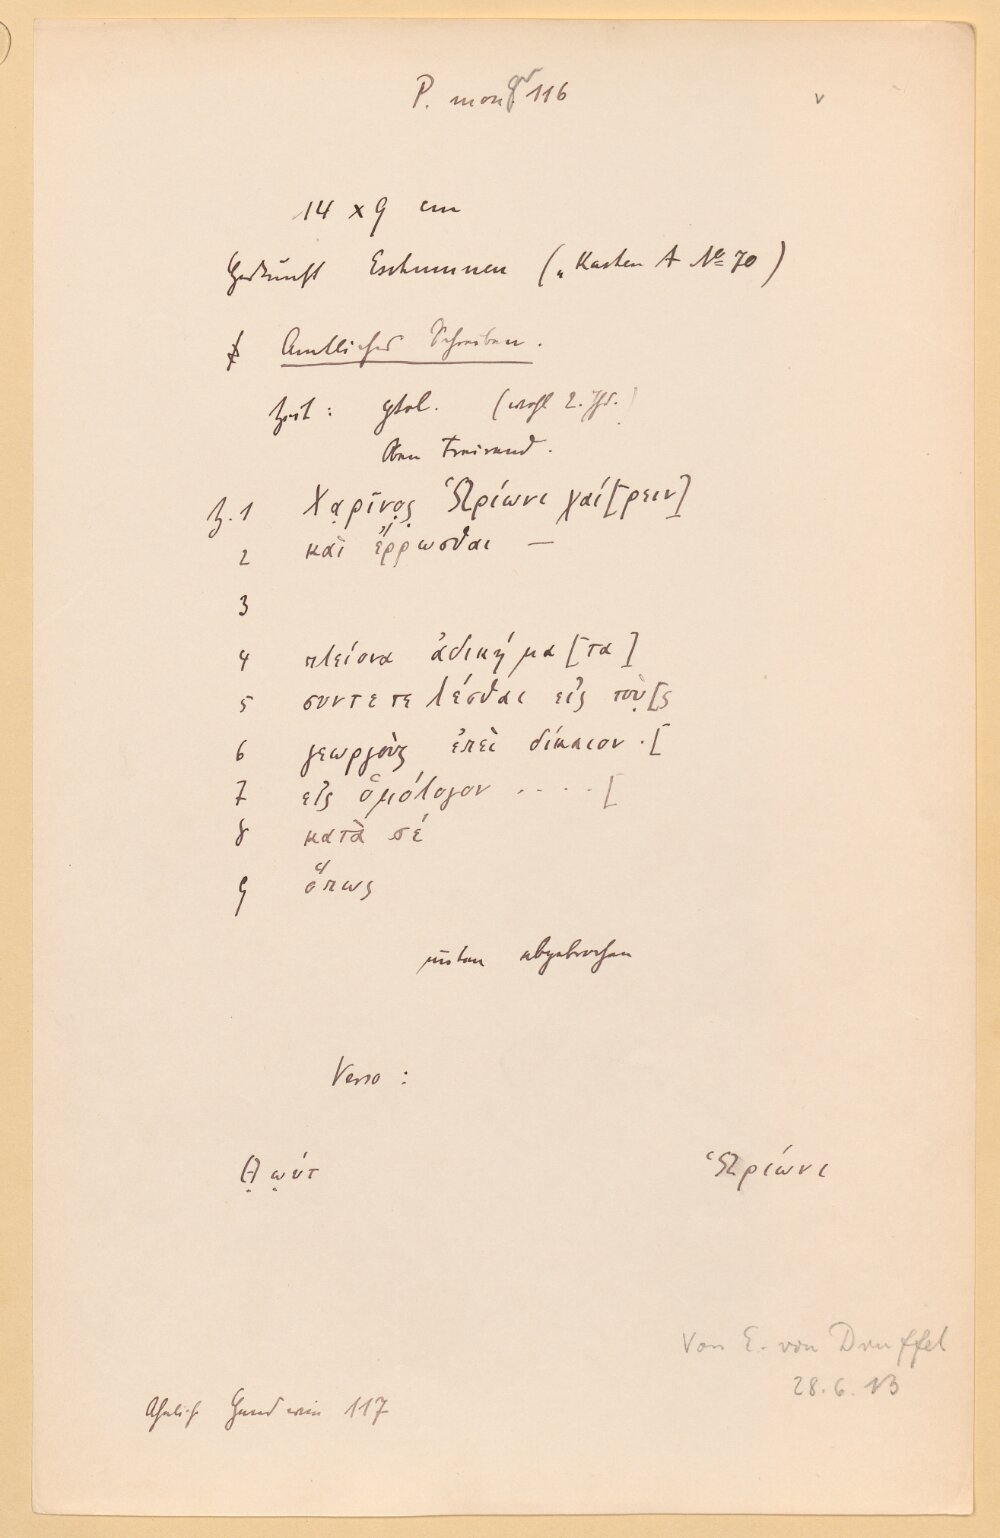 P. mon gr 116
v
14 x 9 cm
Herkunft Eschmunen („Kasten A No 70)
Amtliches Schreiben.
Zeit: ptol. (wohl 2. Jh.)
Oben Freirand.
Z. 1 Χα̣ρῖνο̣ς̣ Ὡρίωνι χαί[ρειν]
2 καὶ ἔρρωσθαι —
3
4 πλείονα ἀδικήμα[τα]
5 συντετελέσθαι εἰς τοὺ̣[ς
6 γεωργοὺς ἐπεὶ δίκαιον .[
7 εἰς ὁμόλογον ....[
8 κατὰ σέ
9 ὅπως
unten abgebrochen
Verso:
Θ̣ω̣ύτ Ὡρίωνι
Von E. von Druffel
28. 6. 13
Ähnliche Hand wie in 117